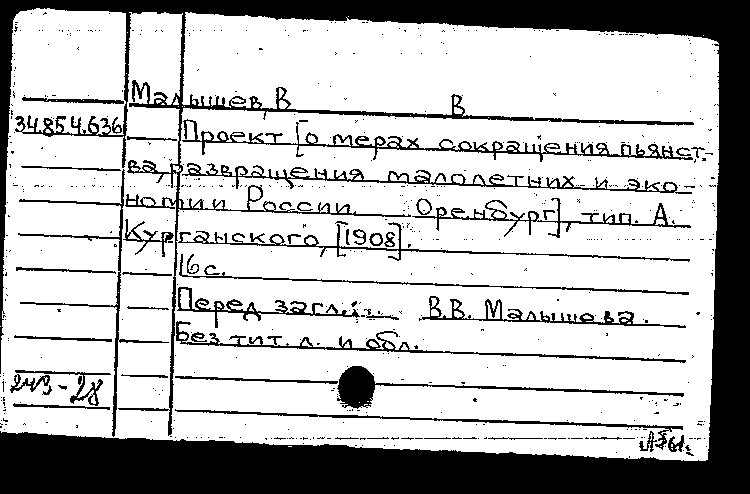 Малышев, В В
34.854.636 Проект [о мерах сокращения пьянст-
ва, развращения малолетних и эко-
номии России. Оренбург], тип. А.
Курганского, [1908].
16 с.
Перед загл.: В.В. Малышева.
Без тит. л. и обл.
243-28